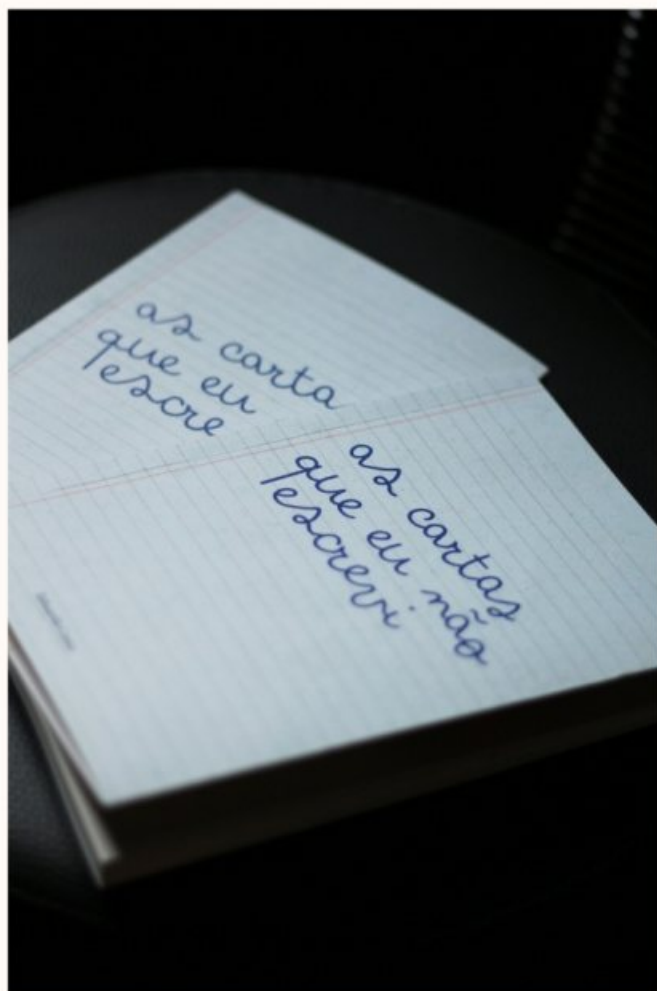 as carta
que eu
escre
as cartas
que eu não
escrevi